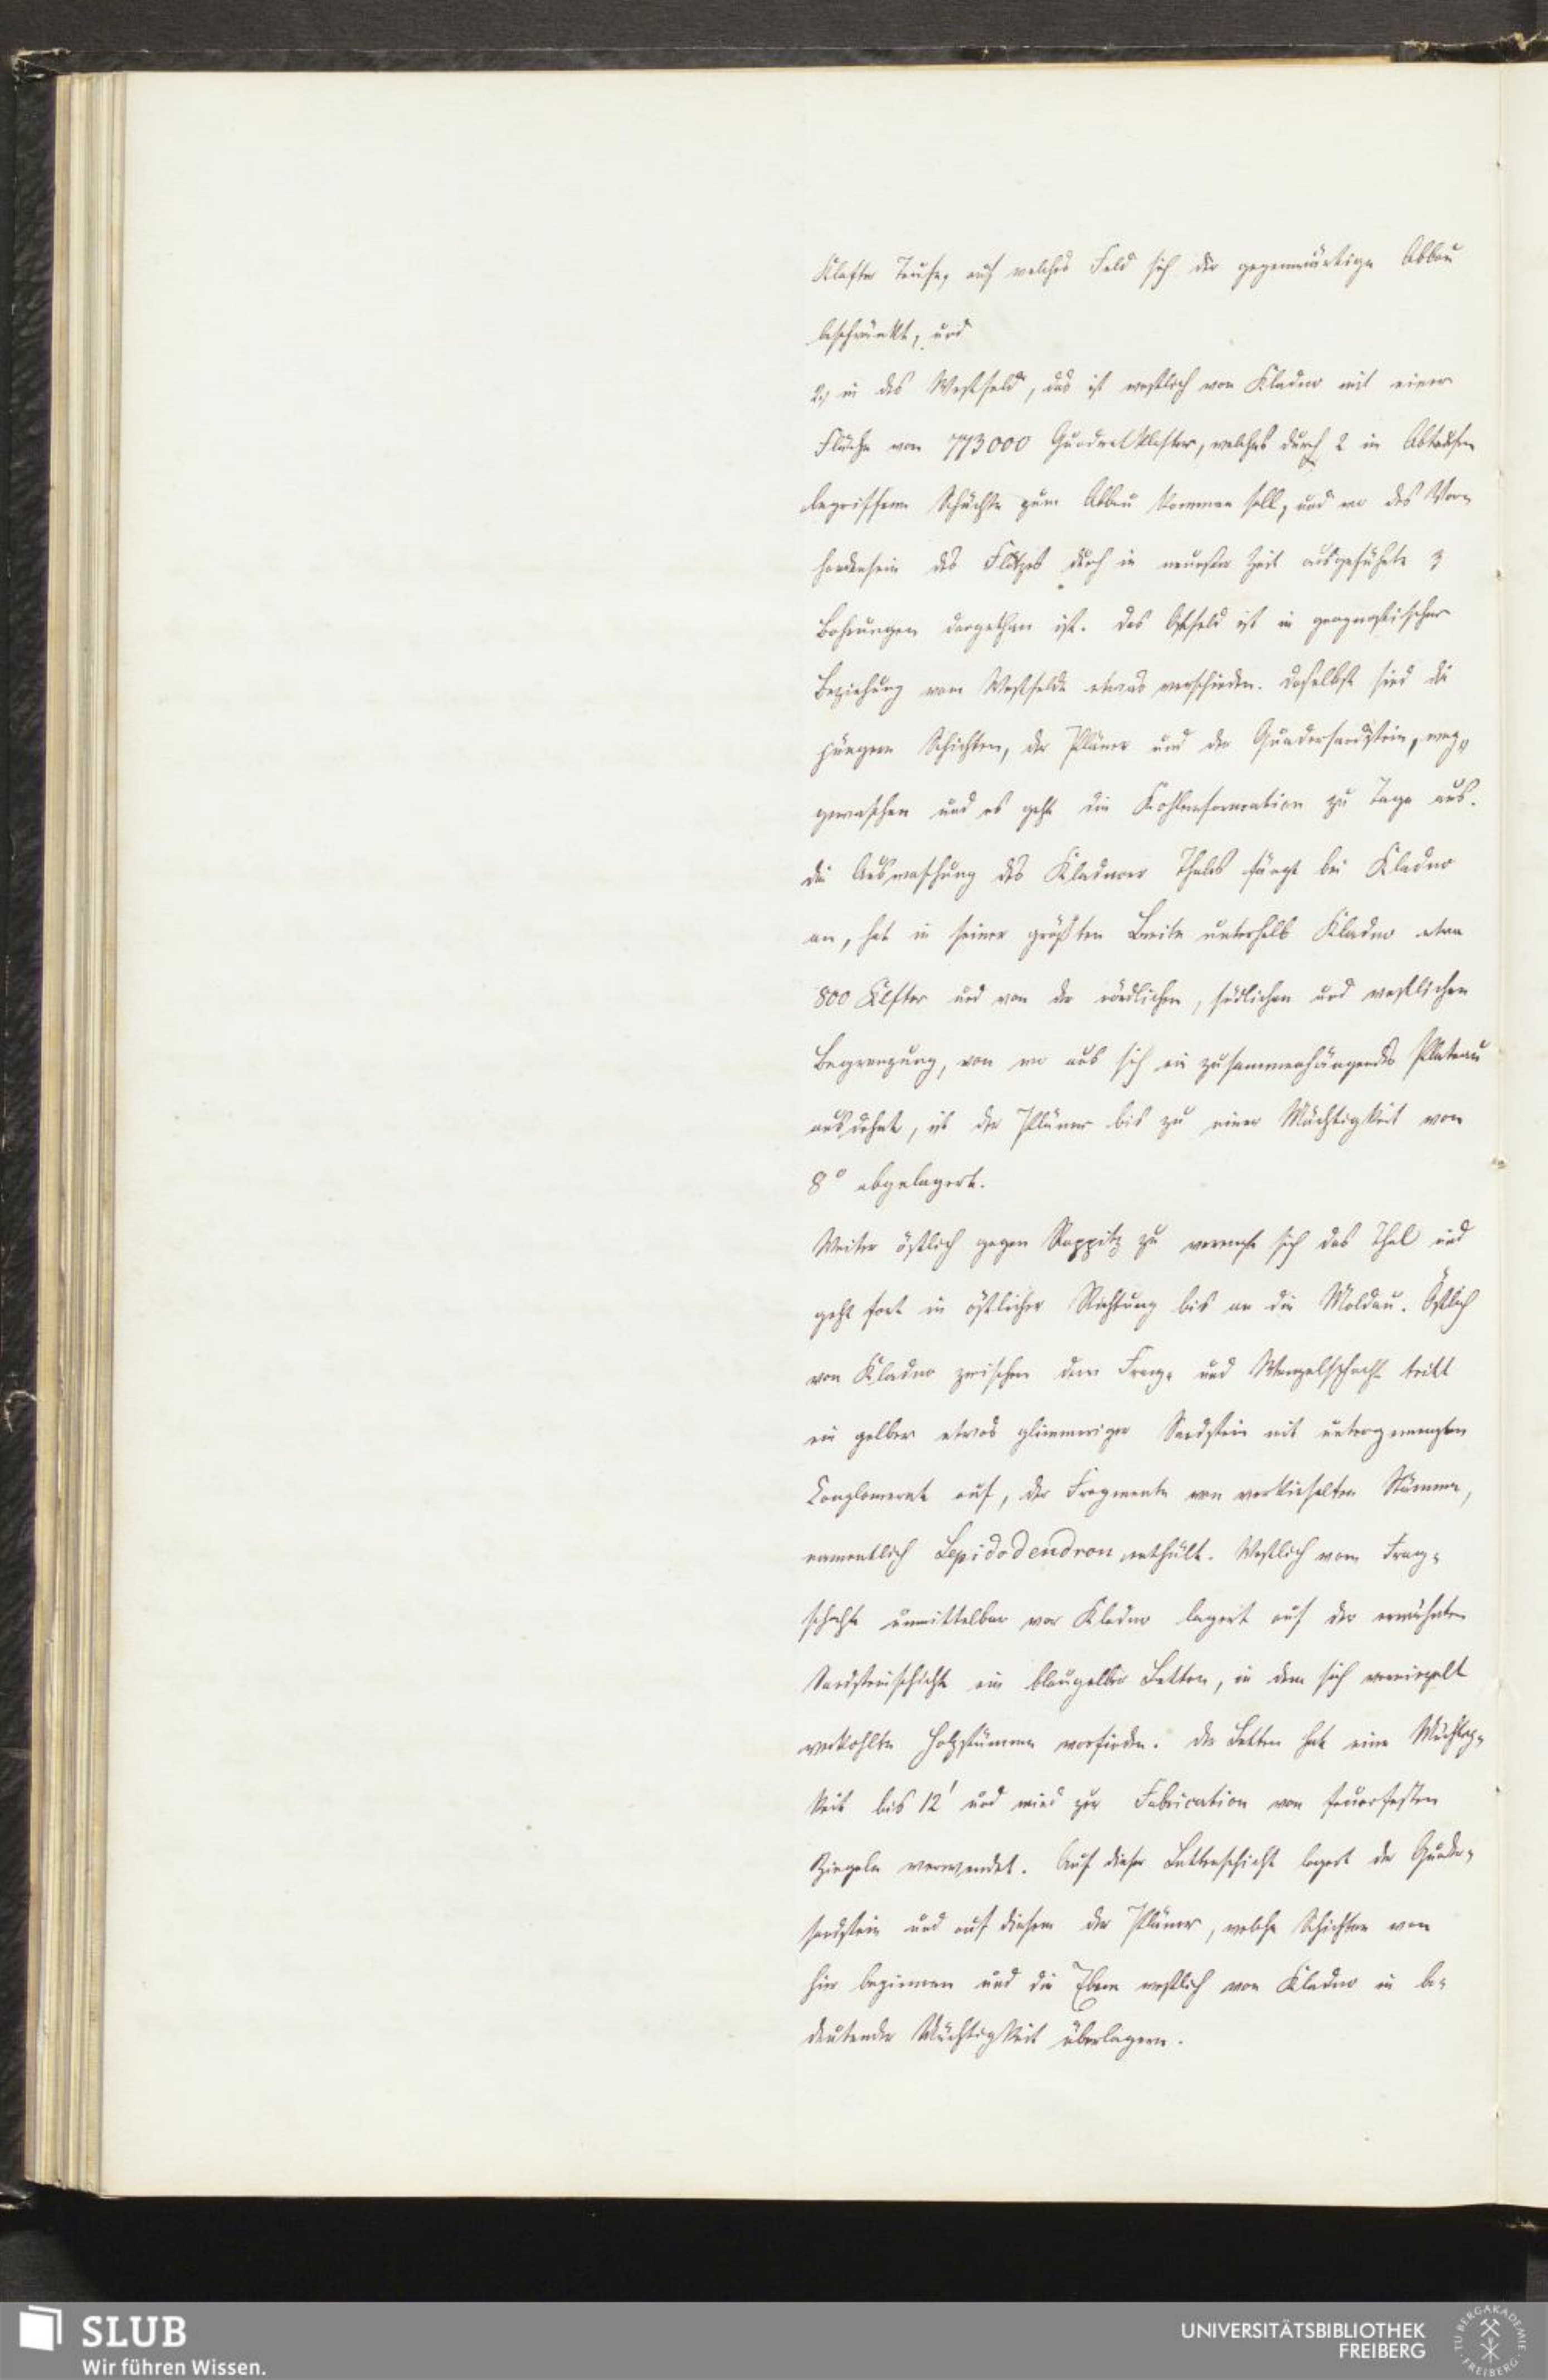 Klafter Teufe, auf welches Feld sich der gegenwärtige Abbau
beschränkt, und
2, in das Westfeld, das ist westlich von Kladno mit einer
Fläche von 773000 Quadratklafter, welches durch 2 in Abteufen
begriffenen Schächte zum Abbau kommen soll, und wo das Vor-
handensein des Flötzes durch in neuester Zeit ausgeführte 3
Bohrungen dargethan ist. Das Ostfeld ist in geognostischer
Beziehung vom Westfelde etwas verschieden. Daselbst sind die
jüngern Schichten, der Pläner und der Quadersandstein, weg„
gewaschen und es geht die Kohlenformation zu Tage aus.
Die Auswaschung des Kladnoer Thales fängt bei Kladno
an, hat in seiner größten Breite unterhalb Kladno etwa
800 Klfter und von der nördlichen, südlichen und westlichen
Begrenzung, von wo aus sich ein zusammenhängendes Plateau
ausdehnt, ist der Pläner bis zu einer Mächtigkeit von
8° abgelagert.
Weiter östlich gegen Rappitz zu verengt sich das Thal und
geht fort in östlicher Richtung bis an die Moldau. Östlich
von Kladno zwischen dem Franz- und Wenzelschacht tritt
ein gelber etwas glimmeriger Sandstein mit untergemengten
Conglomerat auf, der Fragmente von verkieselten Stämmen,
namentlich Lepidodendron enthält. Westlich vom Franz-
schachte unmittelbar vor Kladno lagert auf der erwähnten
Sandsteinschichte ein blaugelber Letten, in dem sich vereinzelt
verkohlte Holzstämme vorfinden. Der Letten hat eine Mächtig-
keit bis 12' und wird zur Fabrication von feuerfesten
Ziegeln verwendet. Auf dieser Lettenschicht lagert der Quader-
sandstein und auf diesem der Pläner, welche Schichten von
hier beginnen und die Ebene westlich von Kladno in be-
deutender Mächtigkeit überlagern.
SLUB
Wir führen Wissen.
UNIVERSITÄTSBIBLIOTHEK
FREIBERG
TU BERGAKADEMIE
FREIBERG